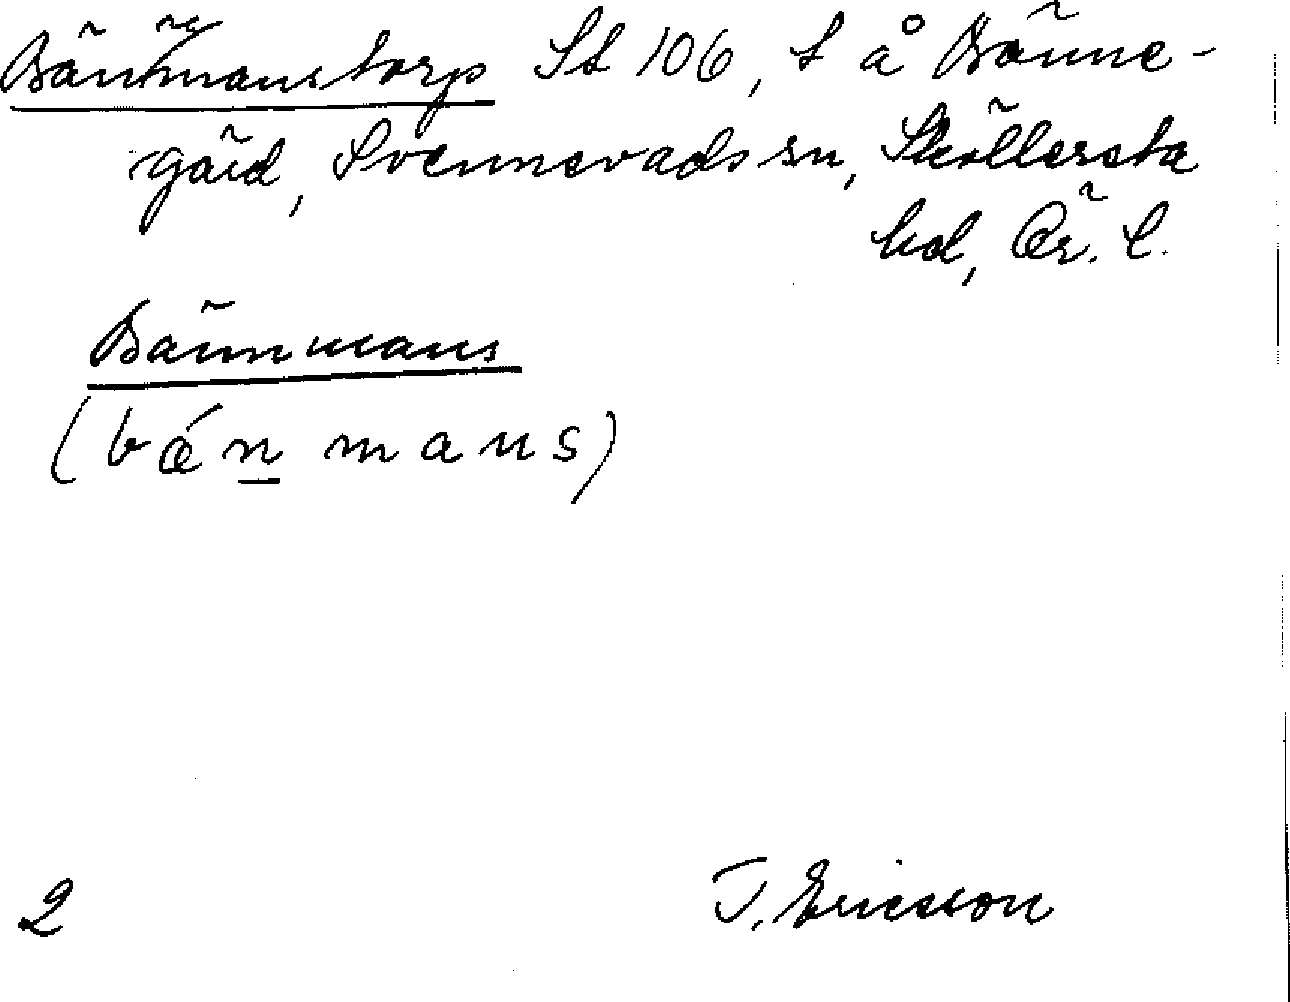 Bännemanstorp St 106, t å Bänne-
gärd, Svennevads sn, Sköllersta
hd, Ör. l.
Bännmans
(bǽn mans)
2
T. Ericsson